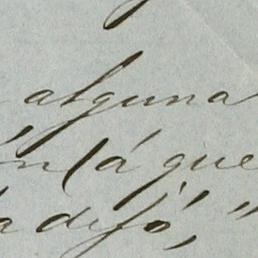 alguna
n (á que
a dejó,"